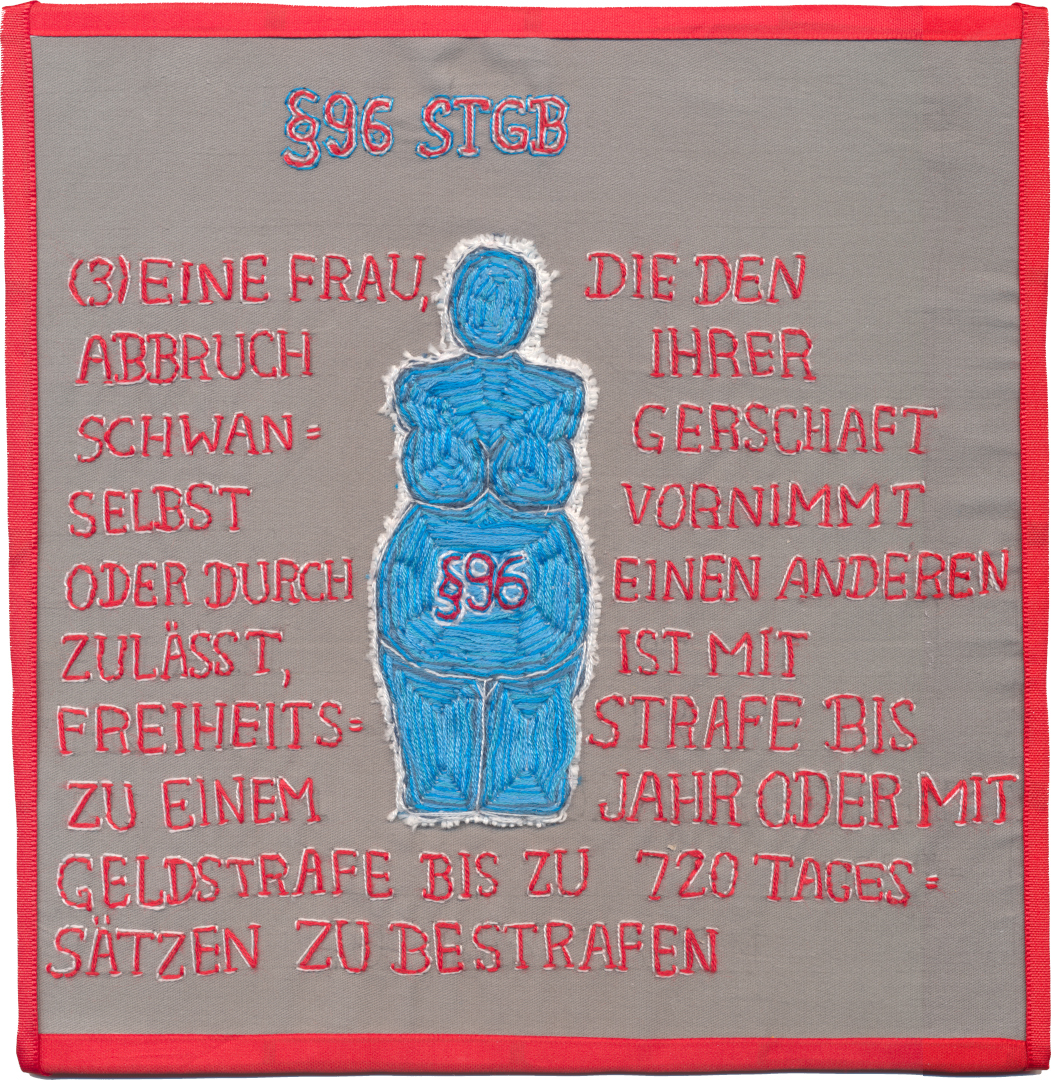 §96 STGB
(3) EINE FRAU, DIE DEN
ABBRUCH IHRER
SCHWAN= GERSCHAFT
SELBST VORNIMMT
§96
ODER DURCH EINEN ANDEREN
ZULÄSST, IST MIT
FREIHEITS= STRAFE BIS
ZU EINEM JAHR ODER MIT
GELDSTRAFE BIS ZU 720 TAGES=
SÄTZEN ZU BESTRAFEN